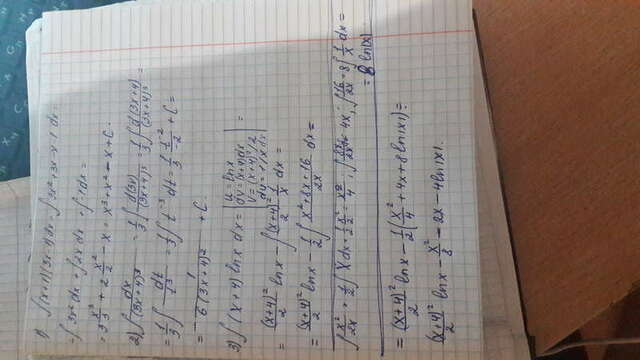 1) ∫(x+1)(3x-1)dx = ∫3x²+3x-x-1 dx =
= ∫3x²dx + ∫2x dx + ∫-1dx =
= 3 x³/3 + 2 x²/2 - x = x³+x²-x+C.
2) ∫ dx/(3x+4)³ = 1/3 ∫ d(3x)/(3x+4)³ = 1/3 ∫ d(3x+4)/(3x+4)³ =
= 1/3 ∫ dt/t³ = 1/3 ∫ t⁻³ dt = 1/3 t⁻²/-2 + C =
= - 1/6(3x+4)² + C.
3) ∫(x+4) ln x dx = | u = ln x
dv = (x+4)dx
v = (x+4)²/2
du = 1/x dx | =
= (x+4)²/2 ln x - ∫ (x+4)²/2 1/x dx =
= (x+4)²/2 ln x - 1/2 ∫ x²+8x+16/2x dx =
∫ x²/2x = 1/2 ∫ x dx = 1/2 x²/2 = x²/4; ∫ 8x/2x = 4x; ∫ 16/2x = 8 ∫ 1/x dx =
= 8 ln|x|
= (x+4)²/2 ln x - 1/2 (x²/4 + 4x + 8 ln|x|) =
(x+4)²/2 ln x - x²/8 - 2x - 4 ln|x|.